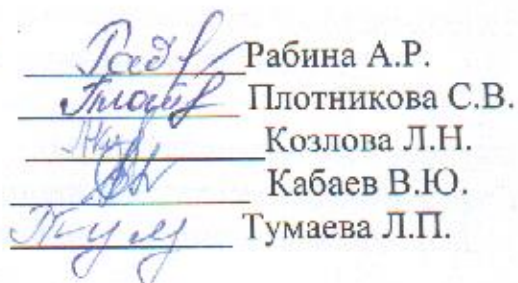 Рабина А.Р.
Плотникова С.В.
Козлова Л.Н.
Кабаев В.Ю.
Тумаева Л.П.